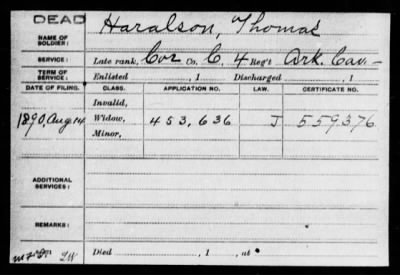 DEAD
NAME OF SOLDIER: Haralson, Thomas
SERVICE: Late rank, Cor Co. C, 4 Reg't Ark. Cav.
TERM OF SERVICE: Enlisted , 1 Discharged , 1
DATE OF FILING. CLASS. APPLICATION NO. LAW. CERTIFICATE NO.
Invalid,
1890, Aug 14 Widow, 453,636 J 559376
Minor,
ADDITIONAL SERVICES:
REMARKS:
Died , 1 , at